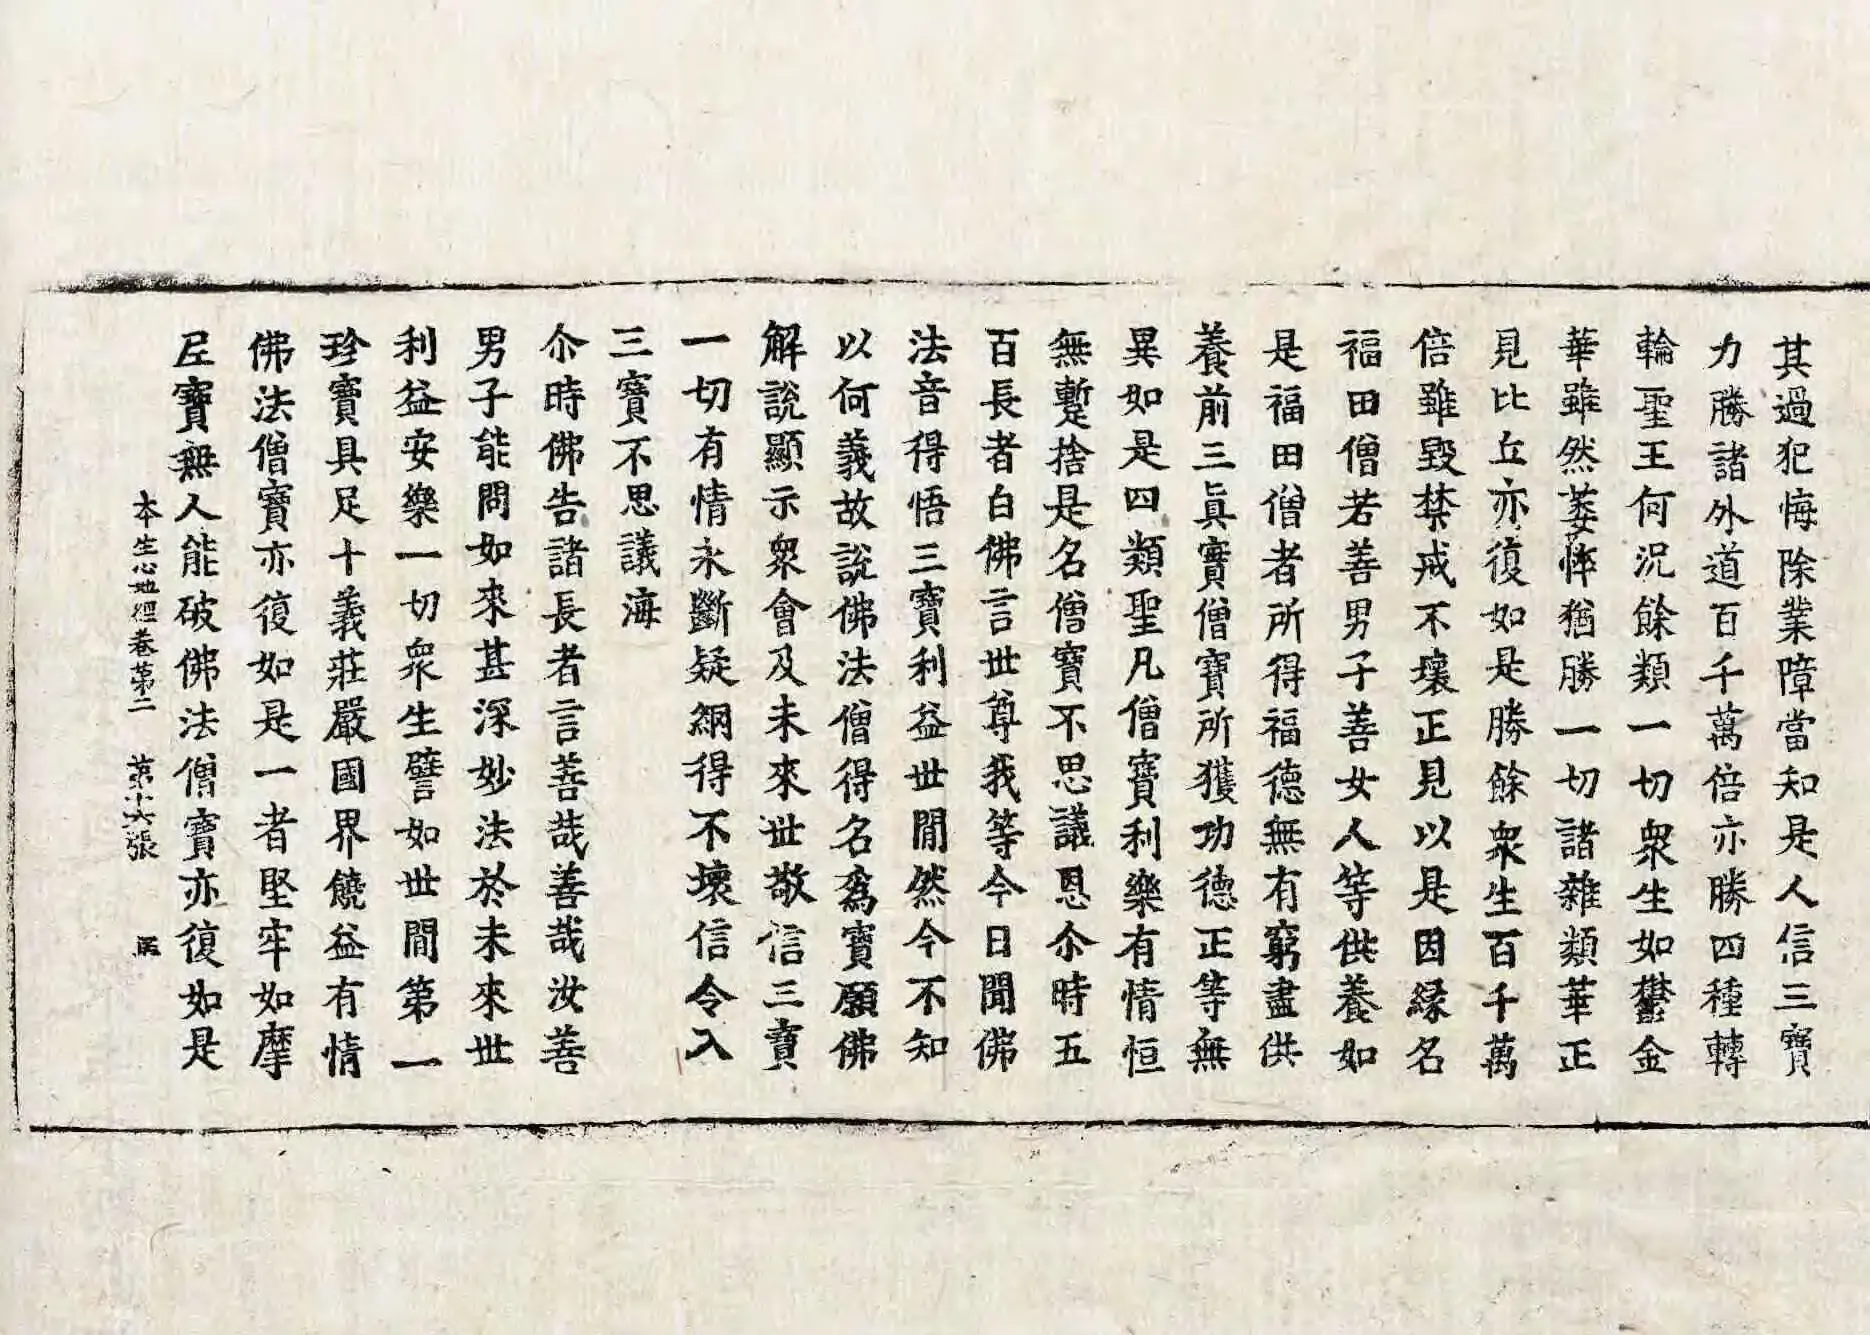 其過犯悔除業障當知是人信三寶
力勝諸外道百千萬倍亦勝四種轉
輪聖王何況餘類一切衆生如鬱金
華雖然萎悴猶勝一切諸雜類華正
見比丘亦復如是勝餘衆生百千萬
倍雖毀禁戒不壞正見以是因縁名
福田僧若善男子善女人等供養如
是福田僧者所得福德無有窮盡供
養前三真實僧寶所獲功德正等無
異如是四類聖凡僧寶利樂有情恒
無蹔捨是名僧寶不思議恩尒時五
百長者白佛言世尊我等今日聞佛
法音得悟三寶利益世閒然今不知
以何義故說佛法僧得名爲寶願佛
解說顯示衆會及未來世敬信三寶
一切有情永斷疑網得不壞信令入
三寶不思議海
尒時佛告諸長者言善哉善哉汝善
男子能問如來甚深妙法於未來世
利益安樂一切衆生譬如世間第一
珍寶具足十義莊嚴國界饒益有情
佛法僧寶亦復如是一者堅牢如摩
尼寶無人能破佛法僧寶亦復如是
本生心地經卷第二 第六張